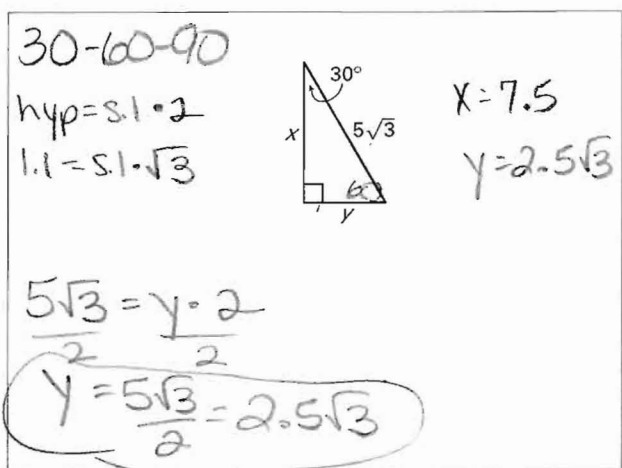 30-60-90
hyp = s.l • 2
l.l = s.l • √3
30°
x
5√3
60
y
x = 7.5
y = 2.5√3
5√3/2 = y • 2/2
y = 5√3/2 = 2.5√3